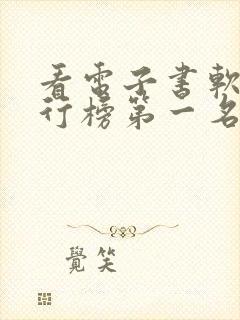 看電子書軟
行榜第一名
覺笑